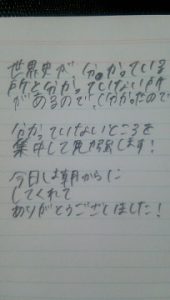 世界史が分かっている
所と分かっていない所
があるので、分かったので
分かっていないところを
集中して勉強します!
今日は朝から
してくれて
ありがとうございました!